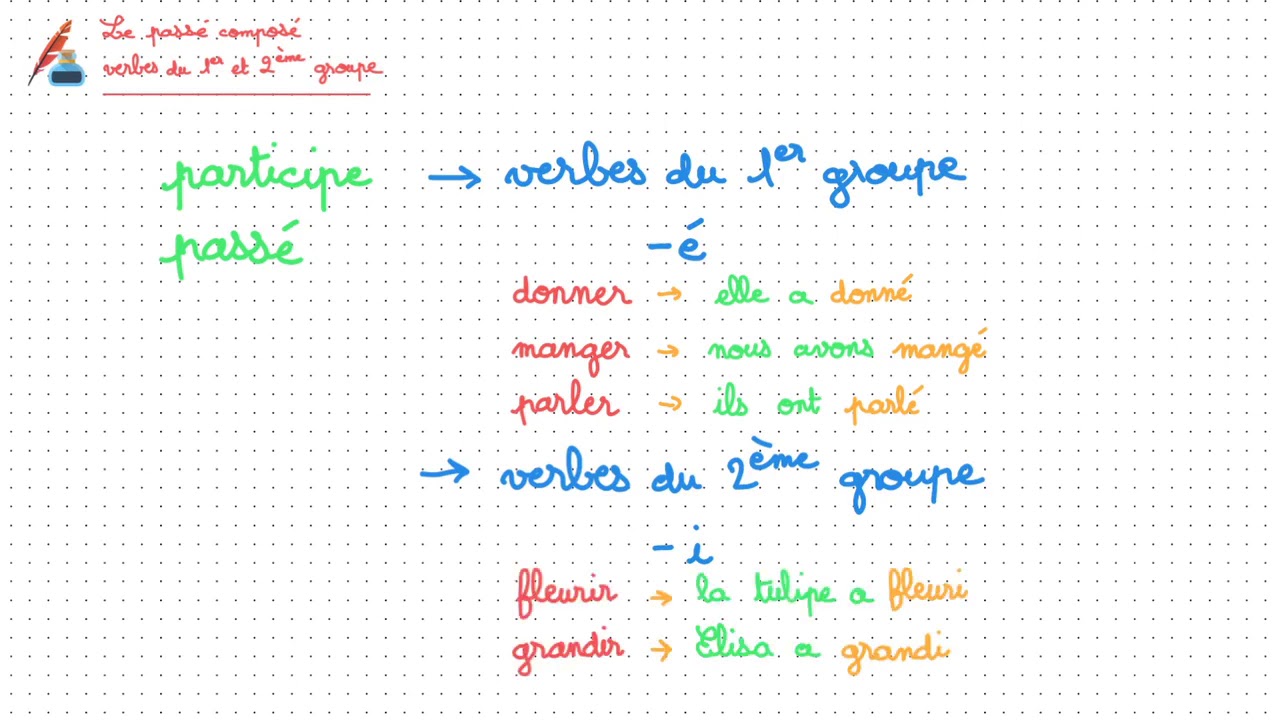 Le passé composé
verbes du 1er et 2ème groupe
participe → verbes du 1er groupe
passé
-é
donner → elle a donné
manger → nous avons mangé
parler → ils ont parlé
→ verbes du 2ème groupe
-i
fleurir → la tulipe a fleuri
grandir → Elisa a grandi